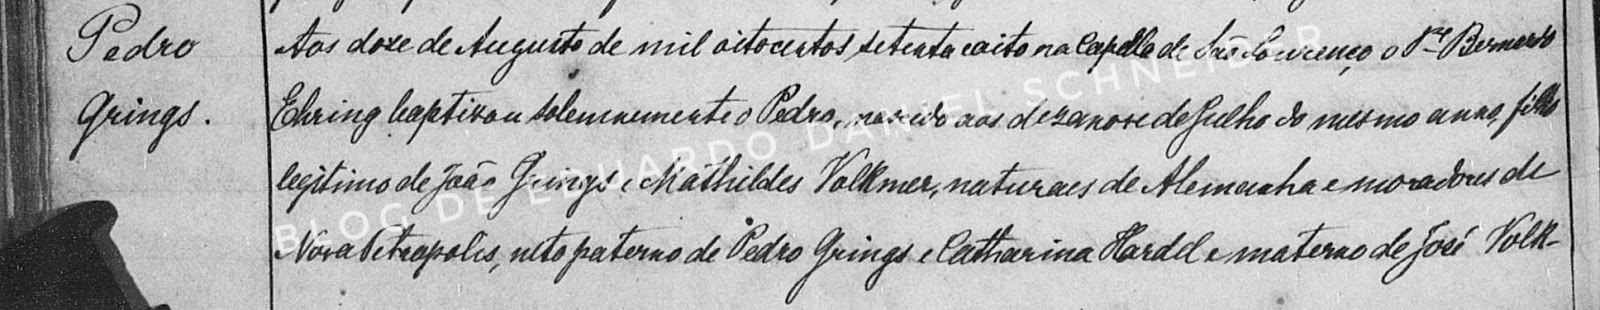 Pedro
Grings.
Aos doze de Augusto de mil oitocentos setenta e oito na Capella de São Lourenço o Pe Bernardo
Ehring baptizou solemnemente o Pedro, nascido aos dezanove de Julho do mesmo anno, filho
legitimo de João Grings e Mathildes Volkmer, naturaes de Alemanha e moradores de
Nova Petropolis, neto paterno de Pedro Grings e Catharina Hardel e materno de José Volk-
BLOG DE EDUARDO DANIEL SCHNEIDER